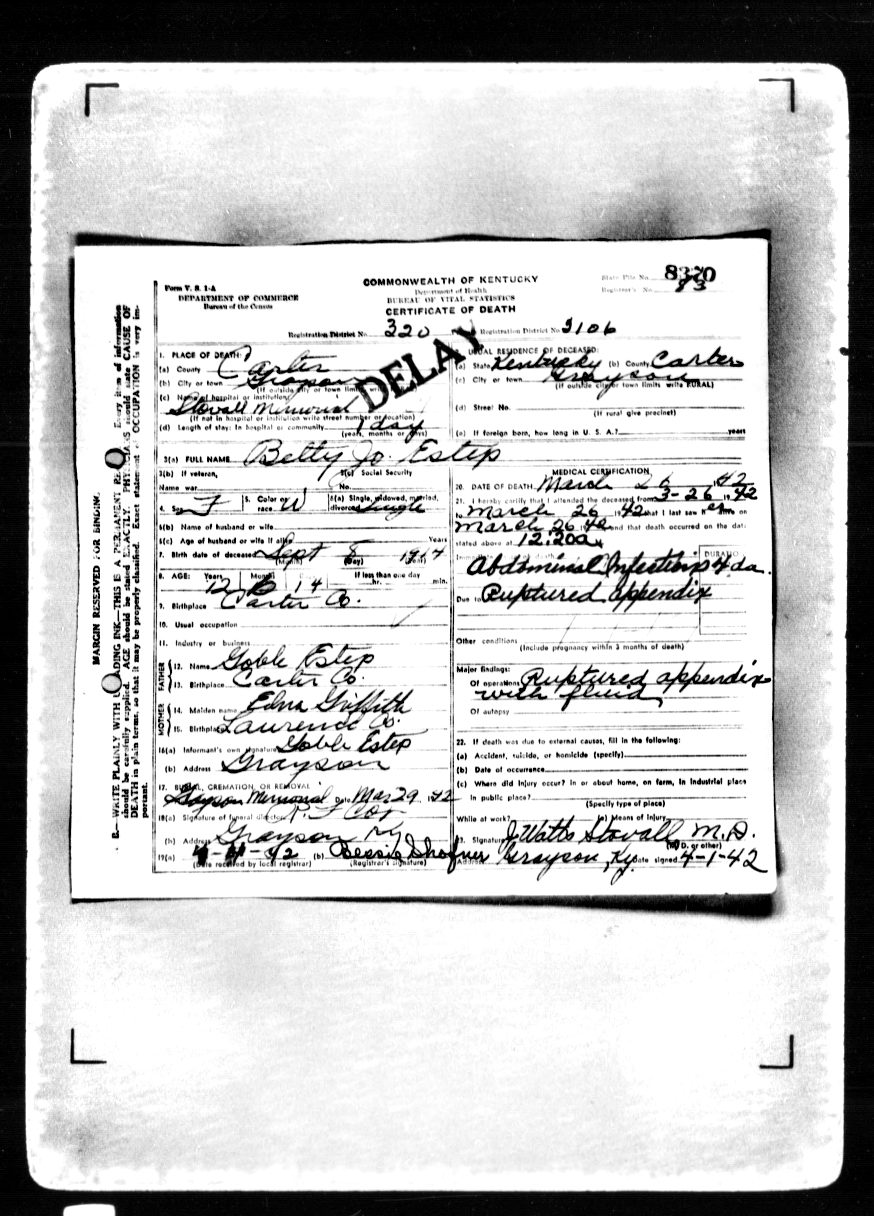 Form V. S. 1-A
DEPARTMENT OF COMMERCE
Bureau of the Census
COMMONWEALTH OF KENTUCKY
Department of Health
BUREAU OF VITAL STATISTICS
CERTIFICATE OF DEATH
State File No. 8320
Registrar's No. 83
Registration District No. 320
Registration District No. 3106
DELAY
MARGIN RESERVED FOR BINDING
B.—WRITE PLAINLY WITH ADING INK—THIS IS A PERMANENT Every item of information
should be carefully supplied. AGE should be stated EXACTLY. should state CAUSE OF
DEATH in plain terms, so that it may be properly classified. Exact statement OCCUPATION is very im-
portant.
1. PLACE OF DEATH:
(a) County Carter
(b) City or town Grayson
(If outside city or town limits
(c) Name of hospital or institution:
Stovall Memorial
(If not in hospital or institution write street number or location)
(d) Length of stay: In hospital or community 1 day
(years, months or days)
USUAL RESIDENCE OF DECEASED:
(a) State Kentucky (b) County Carter
(c) City or town Grayson
(If outside city or town limits write RURAL)
(d) Street No.
(If rural give precinct)
(e) If foreign born, how long in U. S. A.? years
3(a) FULL NAME Betty Jo. Estep
3(b) If veteran,
Name war
3(c) Social Security
No.
4. Sex F
5. Color or race W
6(a) Single, widowed, married,
divorced Single
6(b) Name of husband or wife
6(c) Age of husband or wife if alive Years
7. Birth date of deceased Sept 8
(Month) (Day) (Year)
8. AGE: Years Months
12 6 14
If less than one day
hr. min.
9. Birthplace Carter Co.
10. Usual occupation
11. Industry or business
FATHER
12. Name Goble Estep
13. Birthplace Carter Co.
MOTHER
14. Maiden name Edna Griffith
15. Birthplace Laurence Co.
16(a) Informant's own signature Goble Estep
(b) Address Grayson
17. BURIAL, CREMATION, OR REMOVAL
Grayson Memorial Date Mar 29 1942
18(a) Signature of funeral director
(b) Address Grayson Ky
19(a) 42 (b) Bessie Shofner
(Date received by local registrar) (Registrar's signature)
MEDICAL CERTIFICATION
20. DATE OF DEATH March 26 1942
21. I hereby certify that I attended the deceased from 3-26 1942
to March 26 1942 that I last saw her alive on
March 26 1942 and that death occurred on the date
stated above at 12:20a
DURATION
Abdominal Infection 4 da.
Due to Ruptured appendix
Other conditions
(Include pregnancy within 3 months of death)
Major findings:
Of operations Ruptured appendix
with fluid
Of autopsy
22. If death was due to external causes, fill in the following:
(a) Accident, suicide, or homicide (specify)
(b) Date of occurrence
(c) Where did injury occur? In or about home, on farm, in industrial place
In public place?
(Specify type of place)
While at work? (e) Means of Injury
23. Signature J Watts Stovall M.D.
(M. D. or other)
Address Grayson, Ky. Date signed 4-1-42